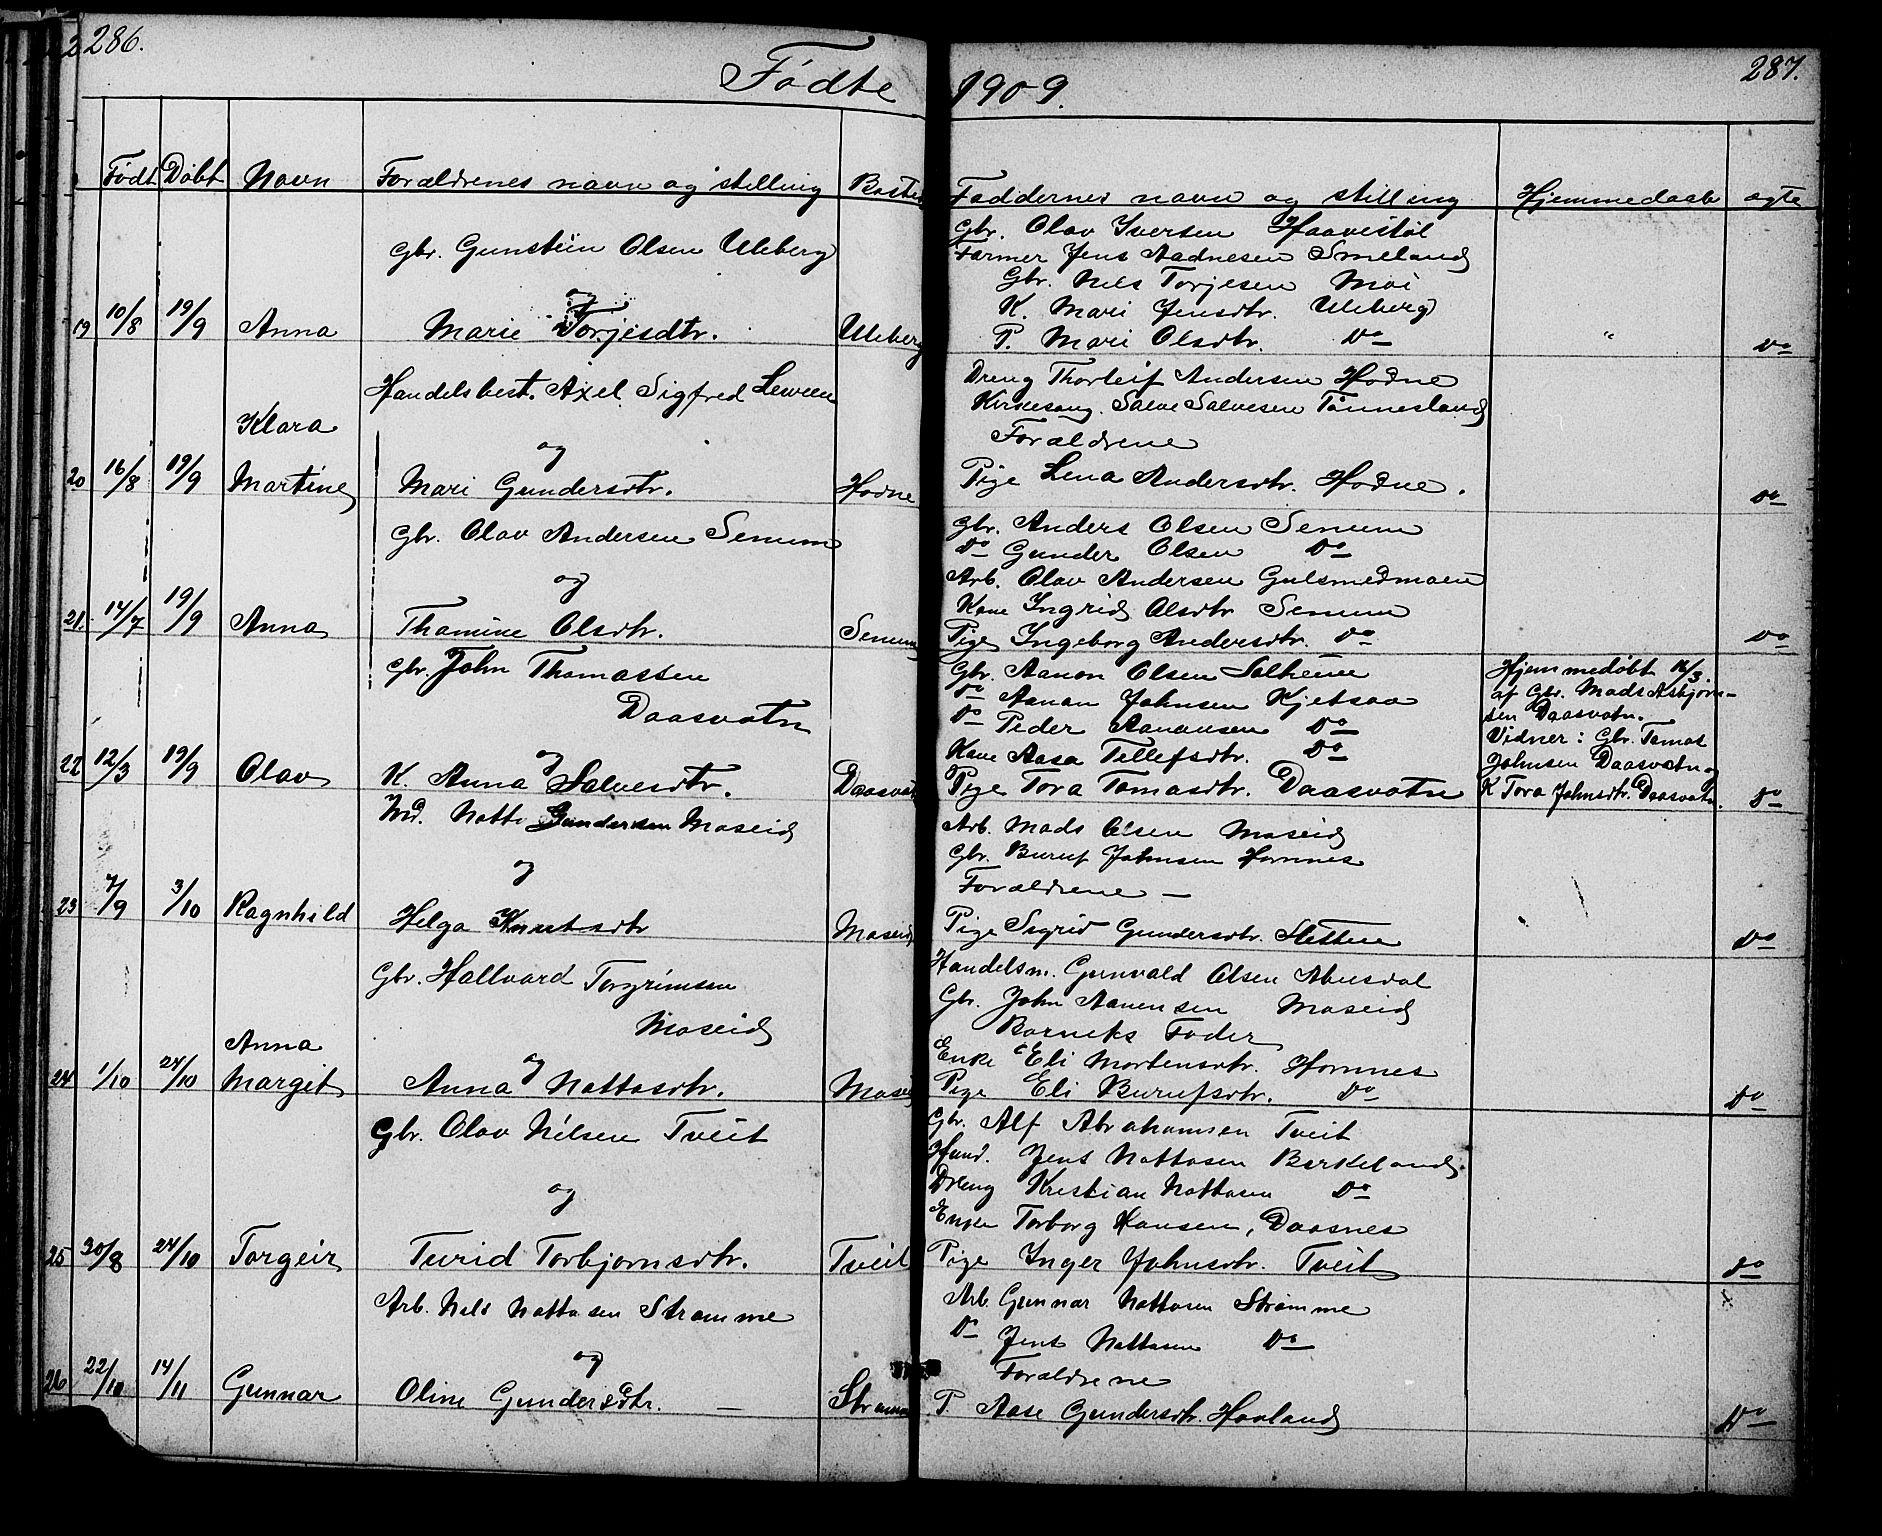 286.
Fødte
Født Døbt Navn Forældrenes navn og stilling Bosted
Gbr. Gunstein Olsen Uleberg
og
19 10/8 19/9 Anna Marie Torjesdtr. Uleberg
Handelsbest. Axel Sigfred
Klara
og
20 16/8 19/9 Martine Mari Gundersdtr. Hodne
Gbr. Olav Andersen Senum
og
21. 14/7 19/9 Anna Thomine Olsdtr. Senum
Gbr. John Thomassen
Daasvatn
og
22 12/3 19/9 Olav K. Anna Salvesdtr. Daasvatn
Ind. Notto Gundersen Moseid
og
23 7/9 3/10 Ragnhild Helga Knutsdtr Moseid
Gbr. Hallvard Torgrimsen
Moseid
Anna
og
24 1/10 24/10 Margit Anna Nottosdtr. Moseid
Gbr. Olav Nilsen Tveit
og
25 30/8 24/10 Torgeir Turid Torbjørnsdtr. Tveit
Arb. Nils Nottosen Strømme
og
26 22/10 14/11 Gunnar Oline Gundersdtr. — Strømme
1909.
287.
Faddernes navn og stilling Hjemmedaab ægte
Gbr. Olav Iversen Haavestøl
Farmer Jens Aadnesen Smeland
Gbr. Nils Torjesen Moi
K. Mari Jensdtr. Uleberg
P. Mari Olsdtr. Do " Do
Dreng Thorleif Andersen Hodne
Kirkesang. Salve Salvesen Tønnesland
Forældrene
Pige Lena Andersdtr. Hodne. Do
Gbr. Anders Olsen Senum
Do Gunder Olsen Do
Arb. Olav Andersen Gulsmedmoen
Kone Ingrid Olsdtr Senum
Pige Ingeborg Andersdtr. Do Do
Gbr. Aanon Olsen
Do Aanon Johnsen Kjetsaa
Do Peder Aanonsen Do
Kone Aasa Tellefsdtr. Do
Pige Tora Tomasdtr. Daasvatn Do
Hjemmedøbt 16/3.
af Gbr. Mads Asbjørn-
sen Daasvatn.
Vidner: Gbr. Tomas
Johnsen Daasvatn og
K Tora Johnsdtr. Daasvatn.
Arb. Mads Olsen Moseid
Gbr. Buruf Johnsen Hornnes
Forældrene —
Pige Sigrid Gundersdtr. Sletten Do
Handelsm. Gunvald Olsen Abusdal
Gbr. John Aanensen Moseid
Barnets Fader
Enke Eli Mortensdtr. Hornnes
Pige Eli Burufsdtr. Do Do
Gbr. Alf Abrahamsen Tveit
Hand. Jens Nottosen Birkeland
Dreng Kristian Nottosen Do
Enke Torborg Hansen, Daasnes
Pige Inger Johnsdtr. Tveit Do
Arb. Gunnar Nottosen Strømme
Do Jens Nottosen Do
Forældrene
P Aase Gundersdtr. Hovland Do